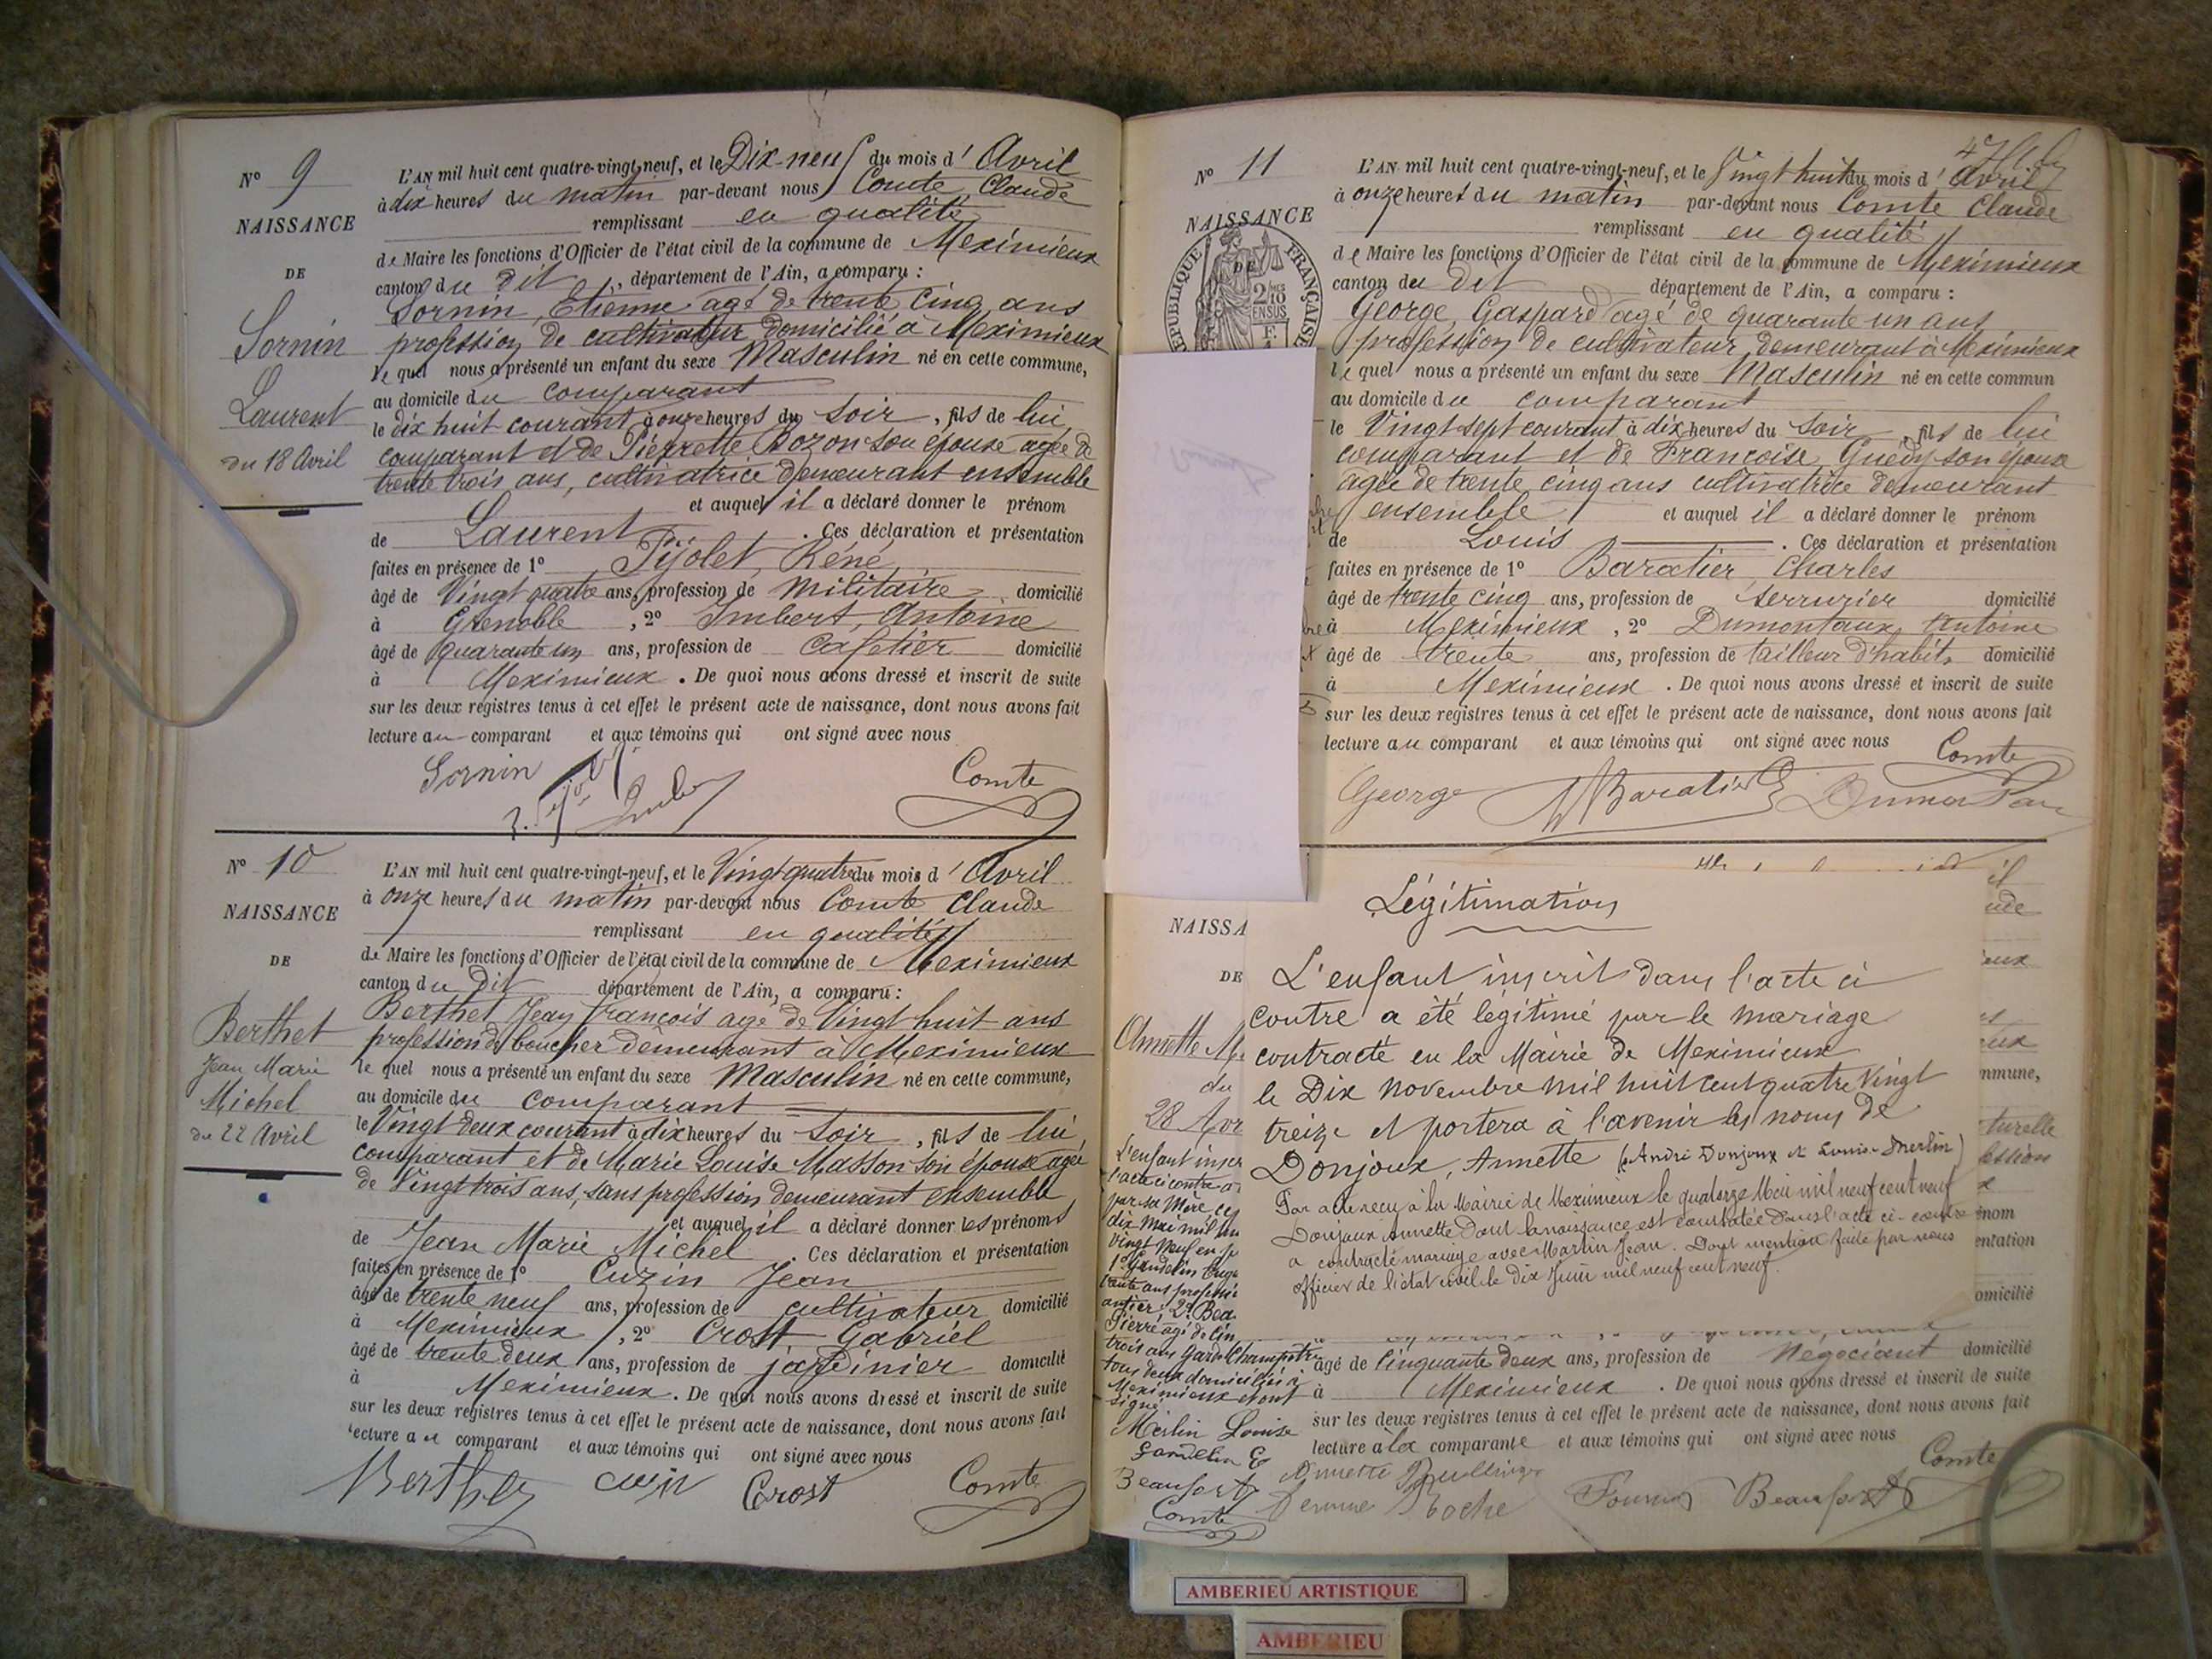 N° 9
NAISSANCE
DE
Sornin
Laurent
du 18 Avril
L'AN mil huit cent quatre-vingt-neuf, et le Dix-neuf du mois d'Avril
à dix heures du matin par-devant nous Comte Claude
remplissant en qualité
de Maire les fonctions d'Officier de l'état civil de la commune de Meximieux
canton du dit, département de l'Ain, a comparu :
Sornin, Etienne agé de trente cinq ans
profession de cultivateur domicilié à Meximieux
le quel nous a présenté un enfant du sexe Masculin né en cette commune,
au domicile du comparant
le dix huit courant à onze heures du soir, fils de lui
comparant et de Pierrette Bozon son épouse agée de
trente trois ans, cultivatrice demeurant ensemble
et auquel il a déclaré donner le prénom
de Laurent. Ces déclaration et présentation
faites en présence de 1° Pijolet, Réné
âgé de Vingt quatre ans, profession de militaire domicilié
à Grenoble, 2° Imbert, Antoine
âgé de quarante un ans, profession de Cafetier domicilié
à Meximieux. De quoi nous avons dressé et inscrit de suite
sur les deux registres tenus à cet effet le présent acte de naissance, dont nous avons fait
lecture au comparant et aux témoins qui ont signé avec nous
Sornin
Comte
N° 10
NAISSANCE
DE
Berthet
Jean Marie
Michel
du 22 Avril
L'AN mil huit cent quatre-vingt-neuf, et le Vingt-quatre du mois d'Avril
à onze heures du matin par-devant nous Comte Claude
remplissant en qualité
de Maire les fonctions d'Officier de l'état civil de la commune de Meximieux
canton du Dit département de l'Ain, a comparu :
Berthet Jean François agé de Vingt huit ans
profession de boucher demeurant à Meximieux
le quel nous a présenté un enfant du sexe Masculin né en cette commune,
au domicile du comparant
le Vingt deux courant à dix heures du soir, fils de lui
comparant et de Marie Louise Masson son épouse agée
de Vingt trois ans, sans profession demeurant ensemble
et auquel il a déclaré donner les prénoms
de Jean Marie Michel. Ces déclaration et présentation
faites en présence de 1° Cuzin Jean
âgé de trente neuf ans, profession de cultivateur domicilié
à Meximieux, 2° Crost Gabriel
âgé de trente deux ans, profession de jardinier domicilié
à Meximieux. De quoi nous avons dressé et inscrit de suite
sur les deux registres tenus à cet effet le présent acte de naissance, dont nous avons fait
lecture au comparant et aux témoins qui ont signé avec nous
Berthet Crost Comte
N° 11
NAISSANCE
DE
RÉPUBLIQUE FRANÇAISE
L'AN mil huit cent quatre-vingt-neuf, et le Vingt huit du mois d'Avril
à onze heures du matin par-devant nous Comte Claude
remplissant en qualité
de Maire les fonctions d'Officier de l'état civil de la commune de Meximieux
canton du Dit département de l'Ain, a comparu :
George, Gaspard agé de quarante un ans
profession de cultivateur demeurant à Meximieux
le quel nous a présenté un enfant du sexe Masculin né en cette commun
au domicile du comparant
le Vingt sept courant à dix heures du soir, fils de lui
comparant et de Françoise Guédy son épouse
agée de trente cinq ans cultivatrice demeurant
ensemble et auquel il a déclaré donner le prénom
de Louis. Ces déclaration et présentation
faites en présence de 1° Baratier, Charles
âgé de trente cinq ans, profession de serrurier domicilié
à Meximieux, 2° Dumontaux Antoine
âgé de trente ans, profession de tailleur d'habits domicilié
à Meximieux. De quoi nous avons dressé et inscrit de suite
sur les deux registres tenus à cet effet le présent acte de naissance, dont nous avons fait
lecture au comparant et aux témoins qui ont signé avec nous
Comte
George Baratier
NAISSA
DE
Annette
du
28 Avr
L'enfant
l'acte ci contre
par sa Mère
dix mai mil
Vingt Neuf
1° Gandelin
trente ans
2° Bea
Pierre agé de cin
trois ans garde Champêtre
tous deux domiciliés à
Meximieux et ont
signé
Merlin Louise
Gandelin
Beaufort
Comte
Légitimation
L'enfant inscrit dans l'acte ci
contre a été légitimé par le mariage
contracté en la Mairie de Meximieux
le Dix novembre mil huit cent quatre Vingt
treize et portera à l'avenir les noms de
Donjoux, Annette (André Donjoux et Louise Merlin)
Par acte reçu à la Mairie de Meximieux le quatorze Mai mil neuf cent neuf
Donjoux Annette dont la naissance est constatée dans l'acte ci-contre
a contracté mariage avec Martin Jean. Dont mention faite par nous
officier de l'état civil le Dix Juin mil neuf cent neuf.
il
ude
eux
nmune,
turelle
ession
énom
entation
omicilié
âgé de Cinquante deux ans, profession de Négociant domicilié
à Meximieux. De quoi nous avons dressé et inscrit de suite
sur les deux registres tenus à cet effet le présent acte de naissance, dont nous avons fait
lecture à la comparante et aux témoins qui ont signé avec nous
Comte
Annette
femme Roche Beaufort
AMBERIEU ARTISTIQUE
AMBERIEU